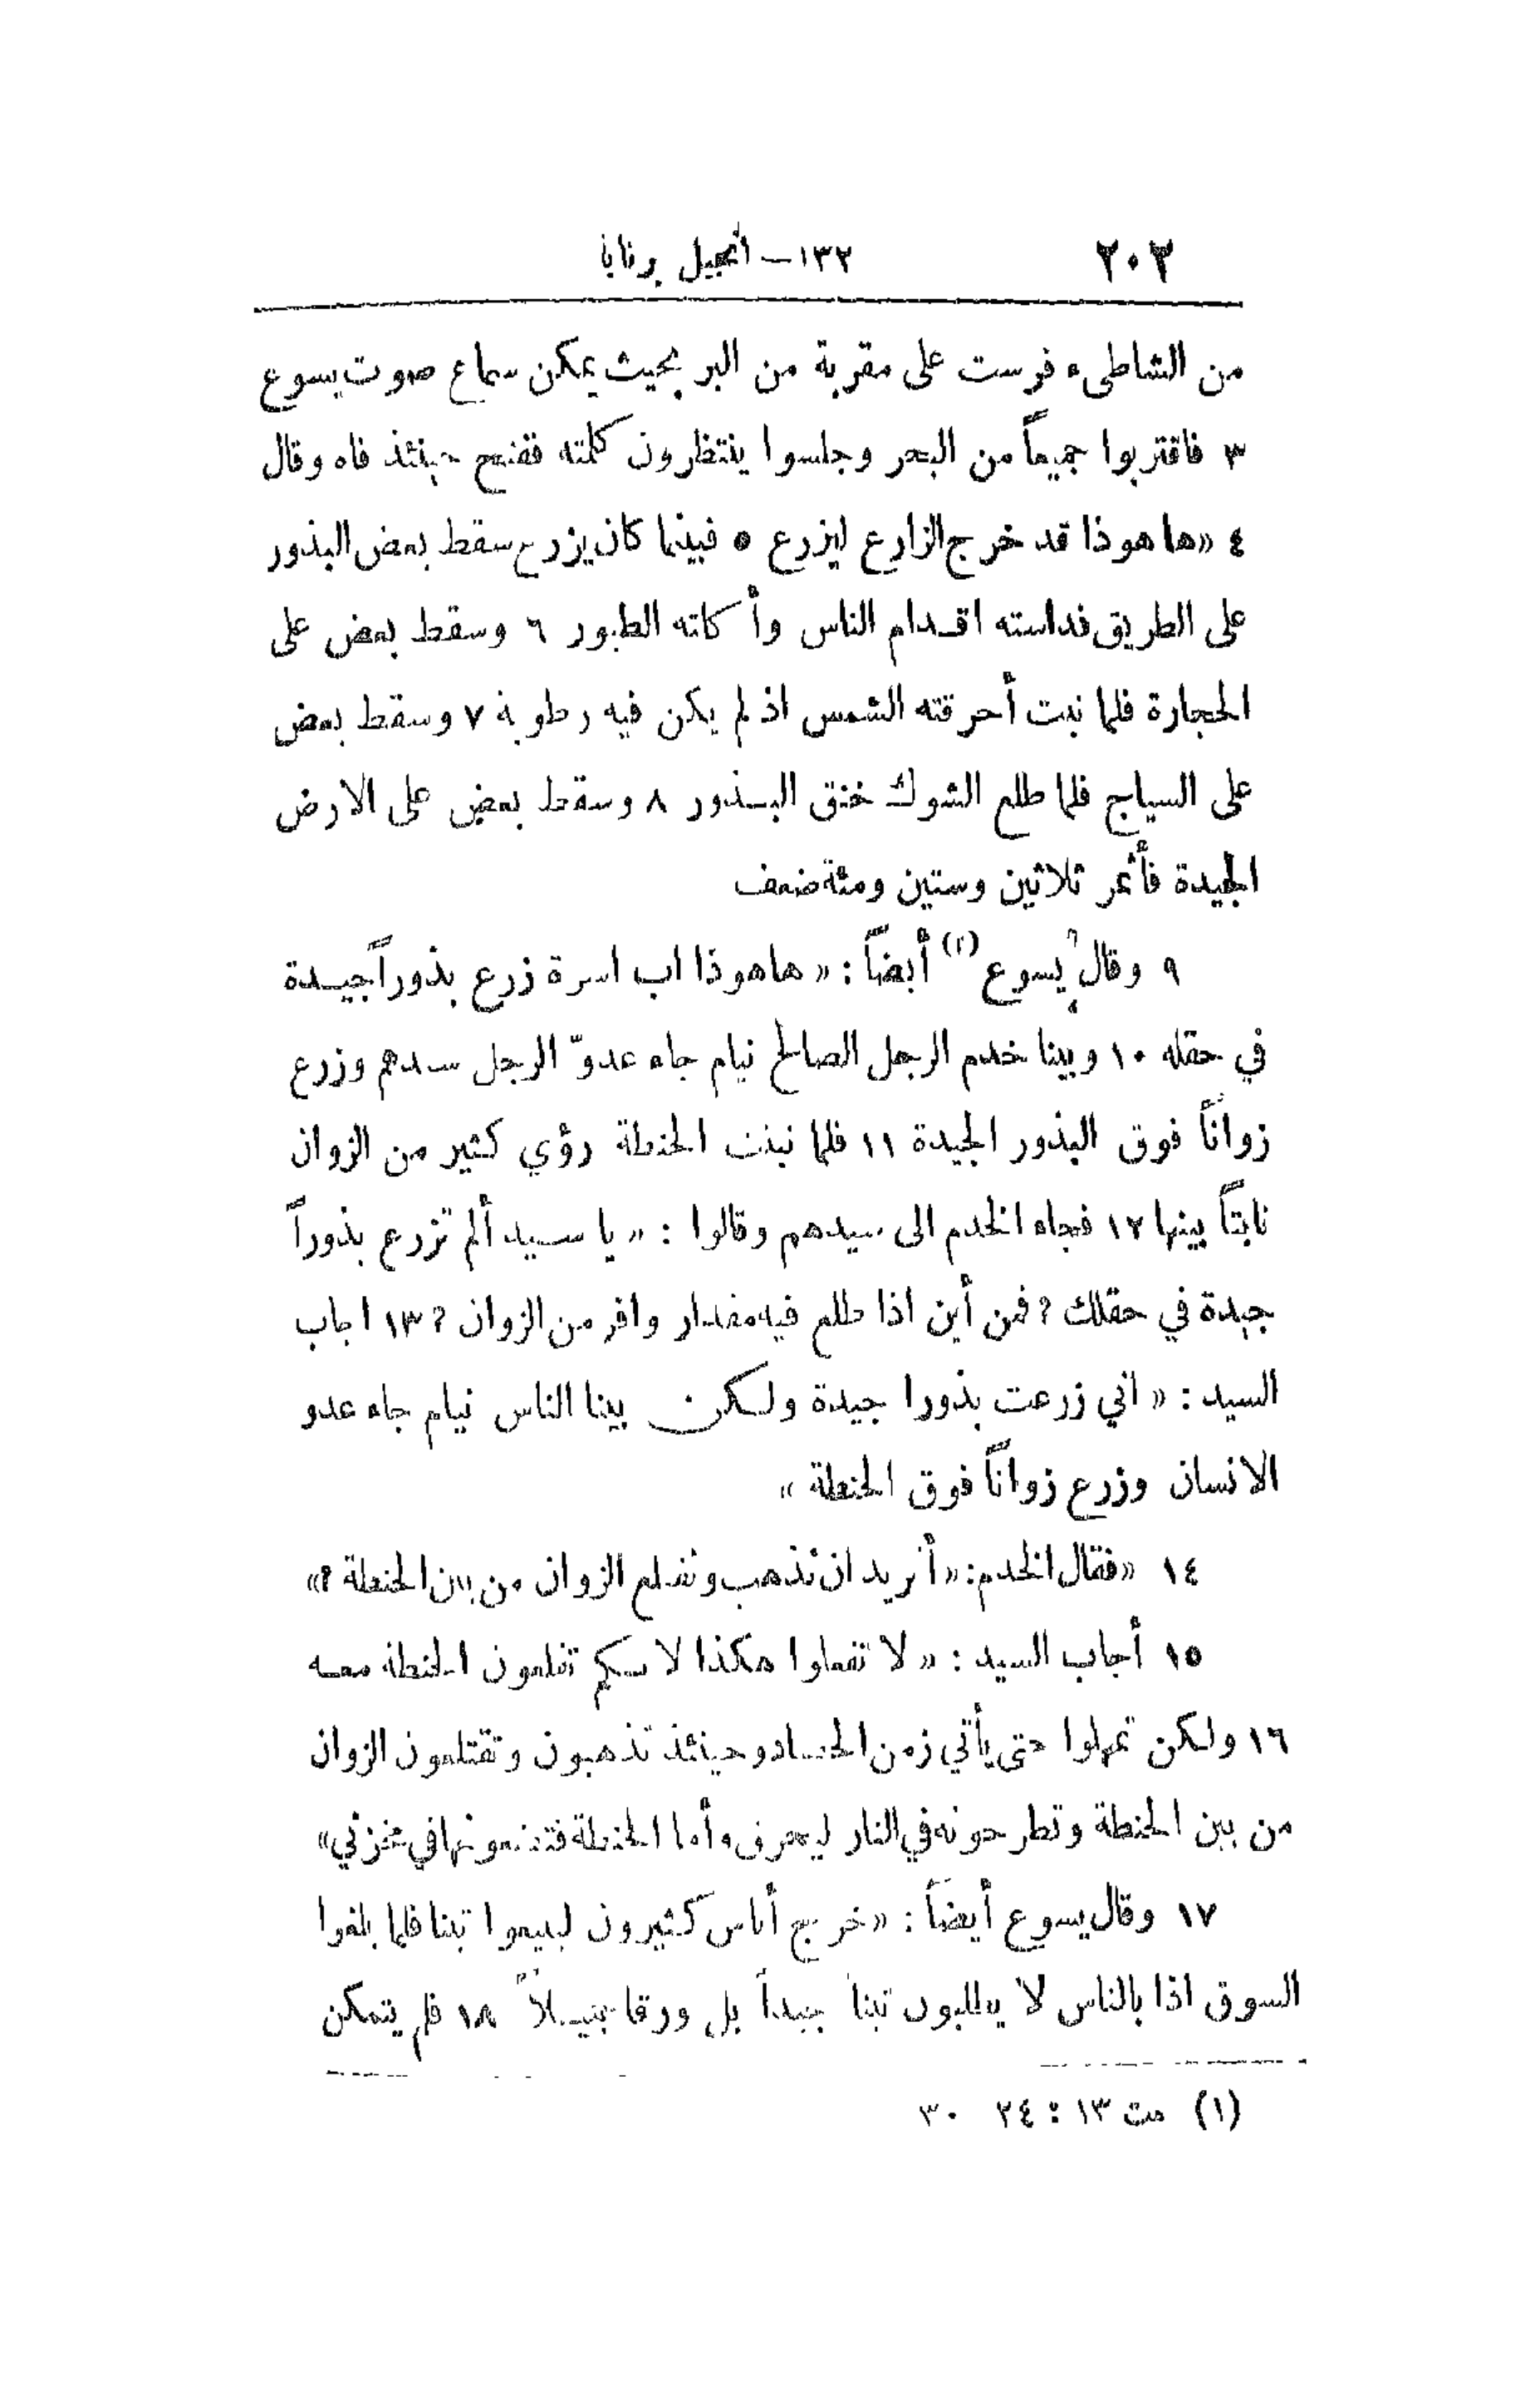 ٢٠٢ ١٣٢ — انجيل برنابا
من الشاطىء فرست على مقربة من البر بحيث يمكن سماع صوت يسوع
٣ فاقتربوا جميعاً من البحر وجلسوا ينتظرون كلمته ففتح حينئذ فاه وقال
٤ «ها هوذا قد خرج الزارع ليزرع ٥ فبينما كان يزرع سقط بعض البذور
على الطريق فداسته اقدام الناس وأكلته الطيور ٦ وسقط بعض على
الحجارة فلما نبت أحرقته الشمس اذ لم يكن فيه رطوبة ٧ وسقط بعض
على السياج فلما طلع الشوك خنق البذور ٨ وسقط بعض على الارض
الجيدة فأثمر ثلاثين وستين ومئة ضعف
٩ وقال يسوع (١) أيضاً : « ها هوذا اب اسرة زرع بذوراً جيدة
في حقله ١٠ وبينا خدم الرجل الصالح نيام جاء عدوّ الرجل سيدهم وزرع
زواناً فوق البذور الجيدة ١١ فلما نبتت الحنطة رؤي كثير من الزوان
نابتاً بينها ١٢ فجاء الخدم الى سيدهم وقالوا : « يا سيد ألم تزرع بذوراً
جيدة في حقلك ? فمن أين اذا طلع فيه مقدار وافر من الزوان ? ١٣ اجاب
السيد : « اني زرعت بذورا جيدة ولكن بينا الناس نيام جاء عدو
الانسان وزرع زواناً فوق الحنطة »
١٤ «فقال الخدم: « أتريد ان نذهب ونقلع الزوان من بين الحنطة ?»
١٥ أجاب السيد : « لا تفعلوا هكذا لانكم تقلعون الحنطة معه
١٦ ولكن تمهلوا حتى يأتي زمن الحصاد وحينئذ تذهبون وتقتلعون الزوان
من بين الحنطة وتطرحونه في النار ليحرق وأما الحنطة فتضعونها في مخزني»
١٧ وقال يسوع أيضاً : « خرج أناس كثيرون ليبيعوا تينا فلما بلغوا
السوق اذا بالناس لا يطلبون تيناً جيداً بل ورقا جميلاً ١٨ فلم يتمكن
(١) مت ١٣ : ٢٤ ٣٠